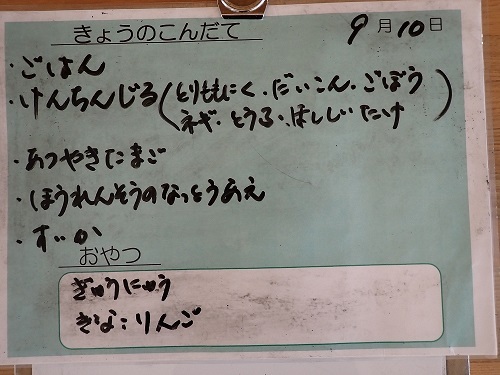 きょうのこんだて 9月10日
・ごはん
・けんちんじる(とりももにく・だいこん・ごぼう
ネギ・とうふ・ほししいたけ)
・あつやきたまご
・ほうれんそうのなっとうあえ
・すいか
おやつ
ぎゅうにゅう
きなこりんご